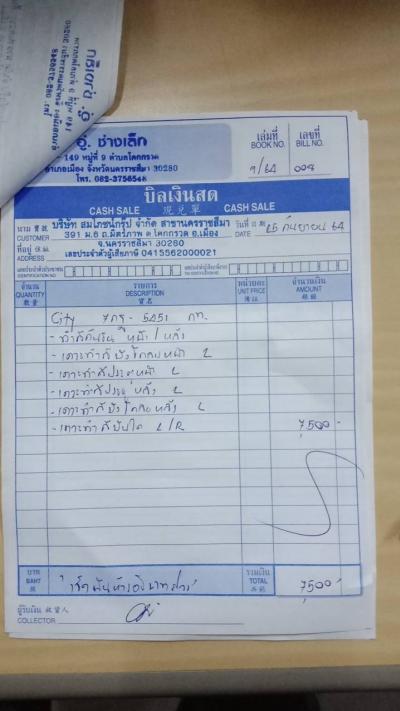 อู่ ช่างเล็ก
149 หมู่ที่ 9 ตำบลโคกกรวด
อำเภอเมือง จังหวัดนครราชสีมา 30280
โทร. 082-3756548
เล่มที่ เลขที่
BOOK NO. BILL NO.
1/64 008
บิลเงินสด
CASH SALE 現兑單 CASH SALE
นาม บริษัท สมโภชน์กรุ๊ป จำกัด สาขานครราชสีมา วันที่ 25 กันยายน 64
CUSTOMER 391 ม.6 ถ.มิตรภาพ ต.โคกกรวด อ.เมือง DATE
ที่อยู่ จ.นครราชสีมา 30280
ADDRESS เลขประจำตัวผู้เสียภาษี 0415562000021
จำนวน รายการ หน่วยละ จำนวนเงิน
QUANTITY DESCRIPTION UNIT PRICE AMOUNT
City 7กฐ - 5451 กท.
- ทำสีกันชน หน้า / หลัง
- เคาะทำสีบังโคลนหน้า L
- เคาะทำสีประตูหน้า L
- เคาะทำสีประตูหลัง L
- เคาะทำสีบังโคลนหลัง L
- เคาะทำสีบันได L/R 7,500 -
บาท รวมเงิน
BAHT เจ็ดพันห้าร้อยบาทถ้วน TOTAL 7,500 -
ผู้รับเงิน
COLLECTOR